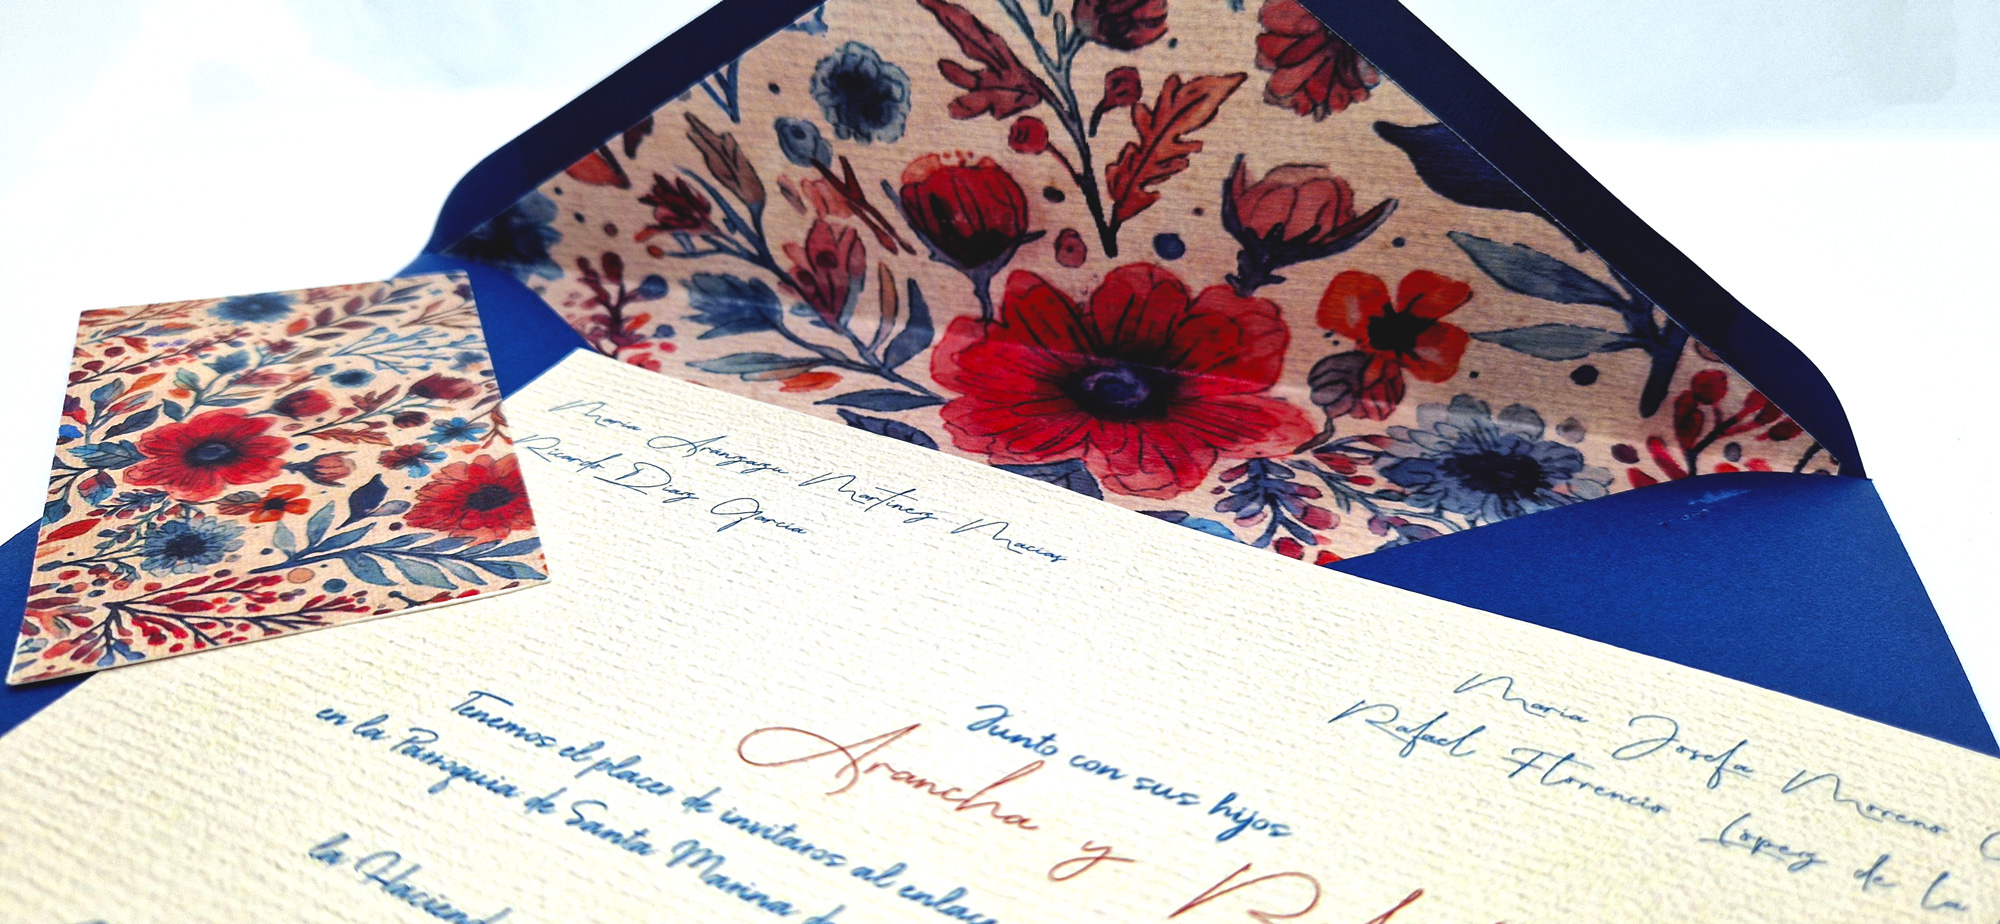 Maria Aranzazu Martinez Macias
Ricardo Diaz Garcia
Maria Josefa Moreno
Rafael Florencio Lopez de la
Junto con sus hijos
Arancha y
Tenemos el placer de invitaros al enlace
en la Parroquia de Santa Marina de
la Haciend